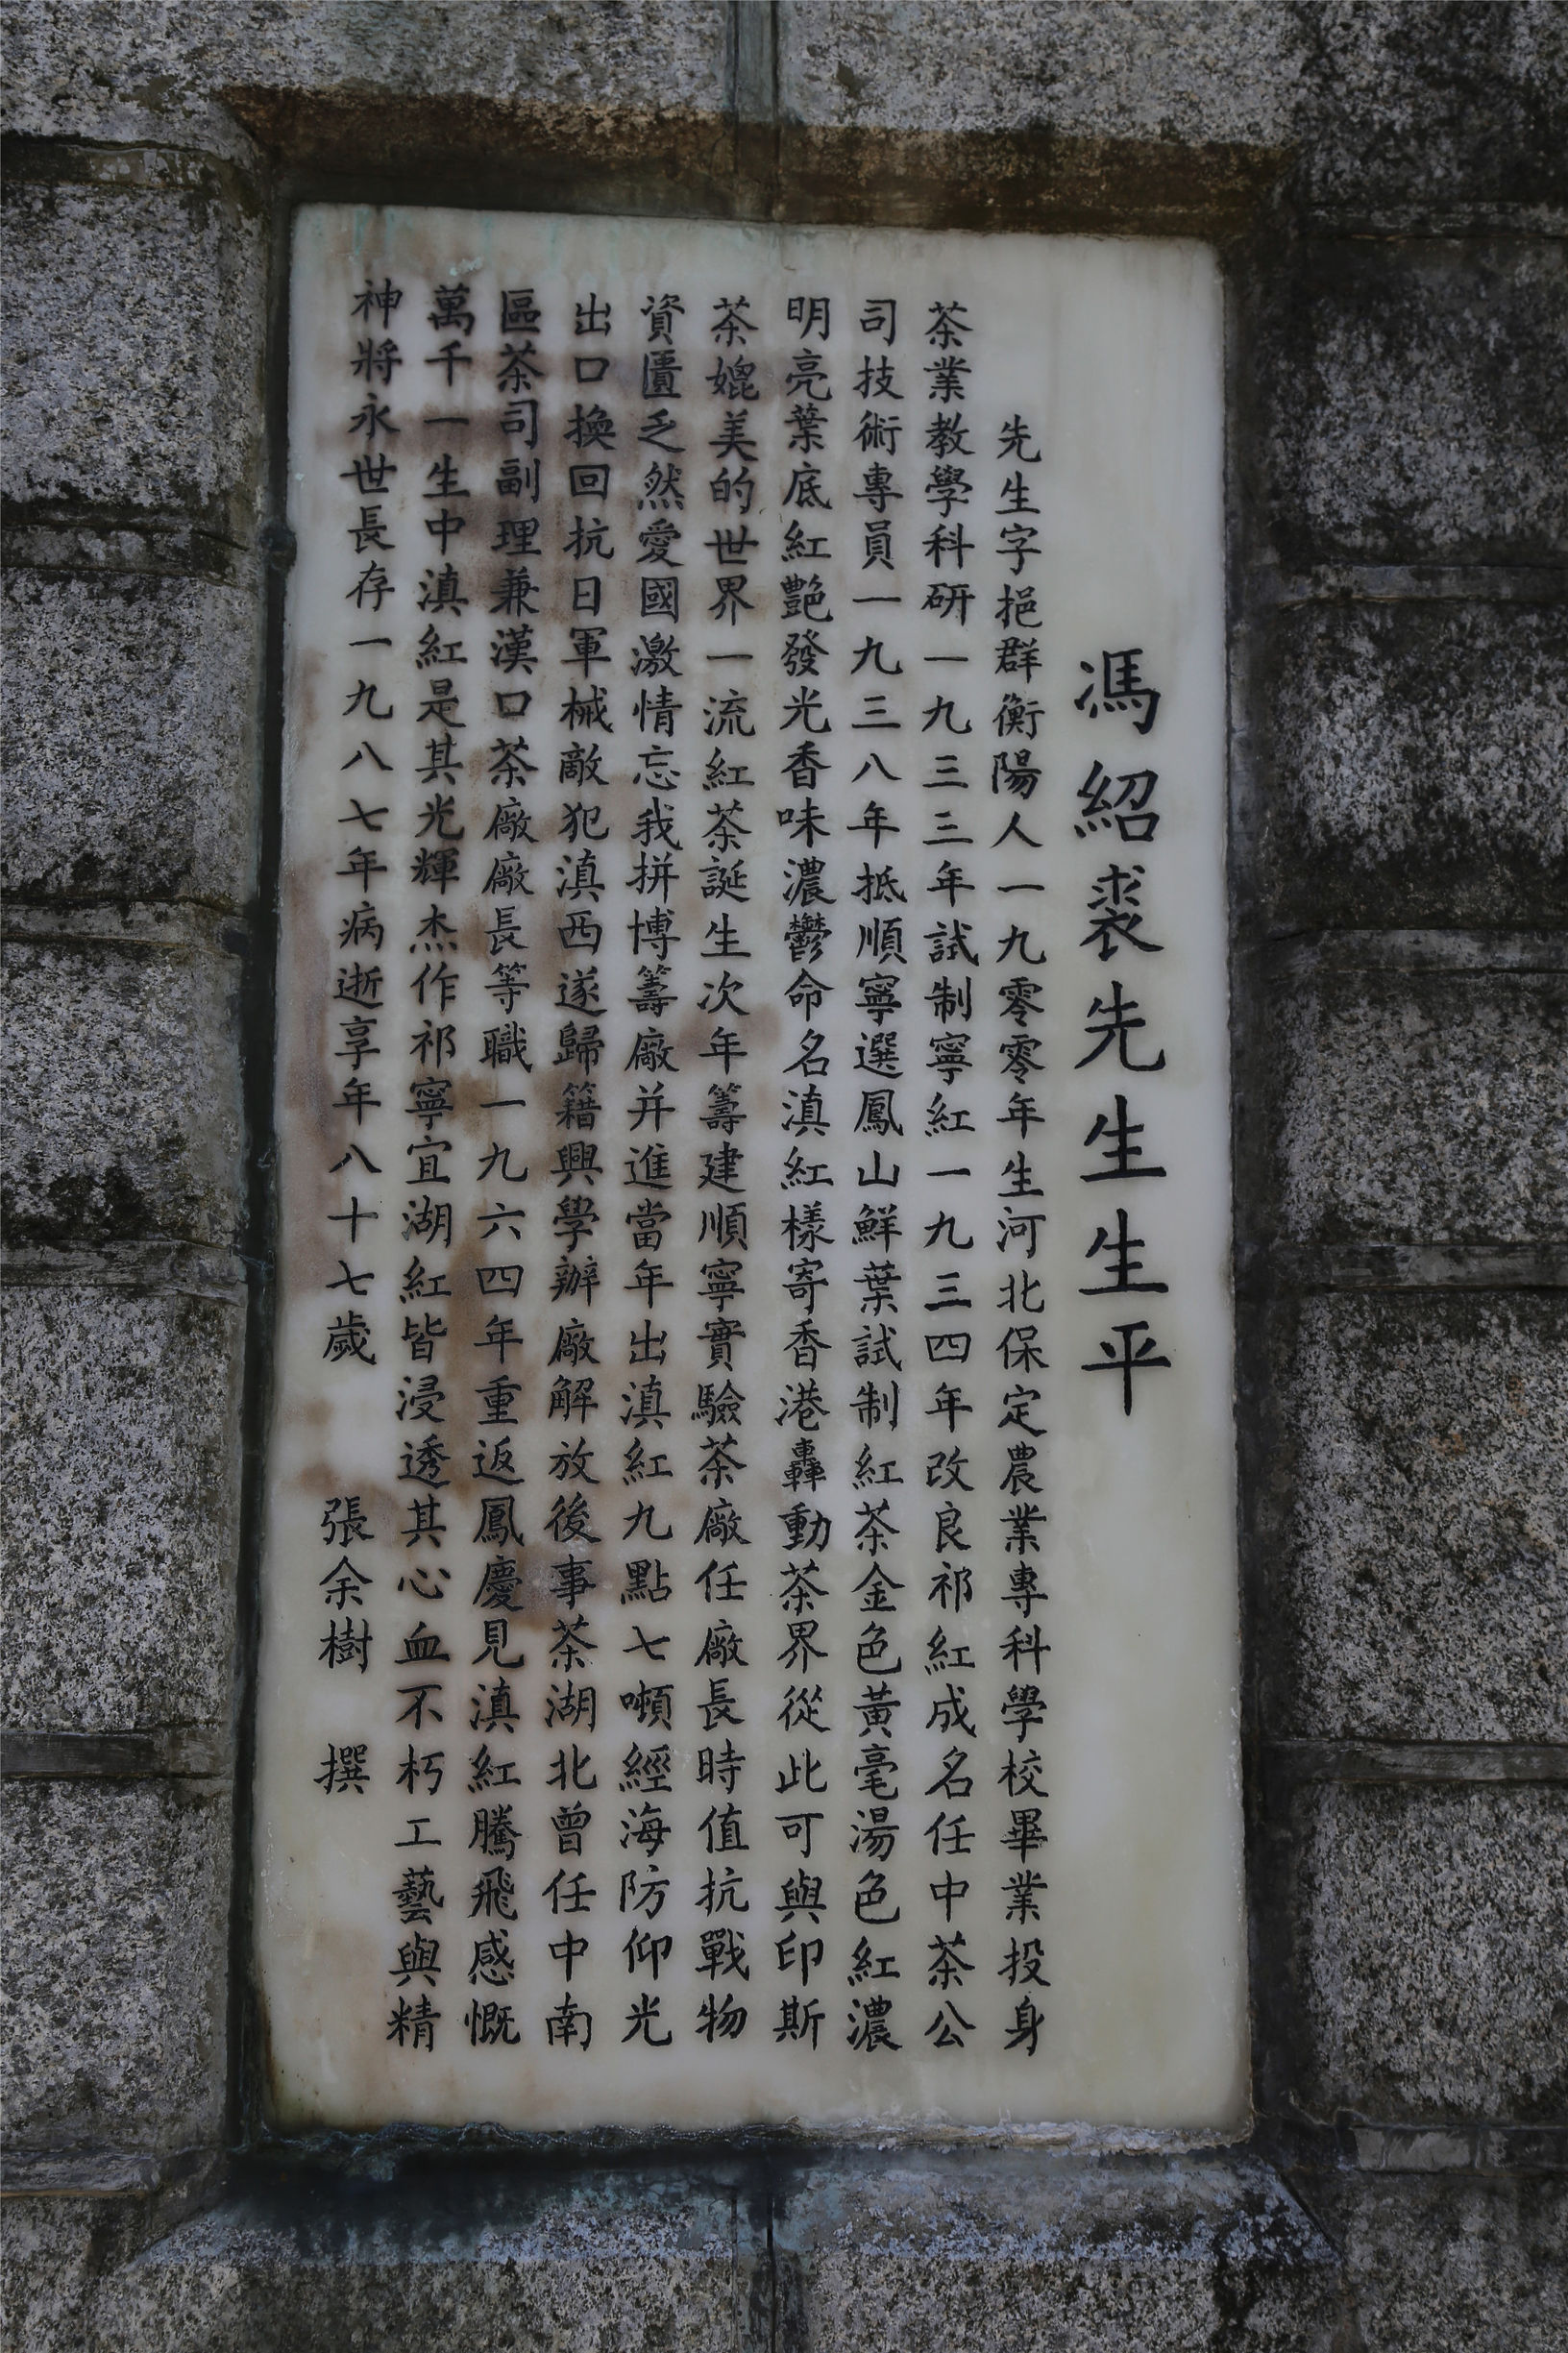 馮紹裘先生生平
先生字挹群衡陽人一九零零年生河北保定農業專科學校畢業投身
茶業教學科研一九三三年試制寧紅一九三四年改良祁紅成名任中茶公
司技術專員一九三八年抵順寧選鳳山鮮葉試制紅茶金色黃毫湯色紅濃
明亮葉底紅艷發光香味濃鬱命名滇紅樣寄香港轟動茶界從此可與印斯
茶媲美的世界一流紅茶誕生次年籌建順寧實驗茶廠任廠長時值抗戰物
資匱乏然愛國激情忘我拼博籌廠并進當年出滇紅九點七噸經海防仰光
出口換回抗日軍械敵犯滇西遂歸籍興學辦廠解放後事茶湖北曾任中南
區茶司副理兼漢口茶廠廠長等職一九六四年重返鳳慶見滇紅騰飛感慨
萬千一生中滇紅是其光輝杰作祁寧宜湖紅皆浸透其心血不朽工藝與精
神將永世長存一九八七年病逝享年八十七歲 張余樹 撰